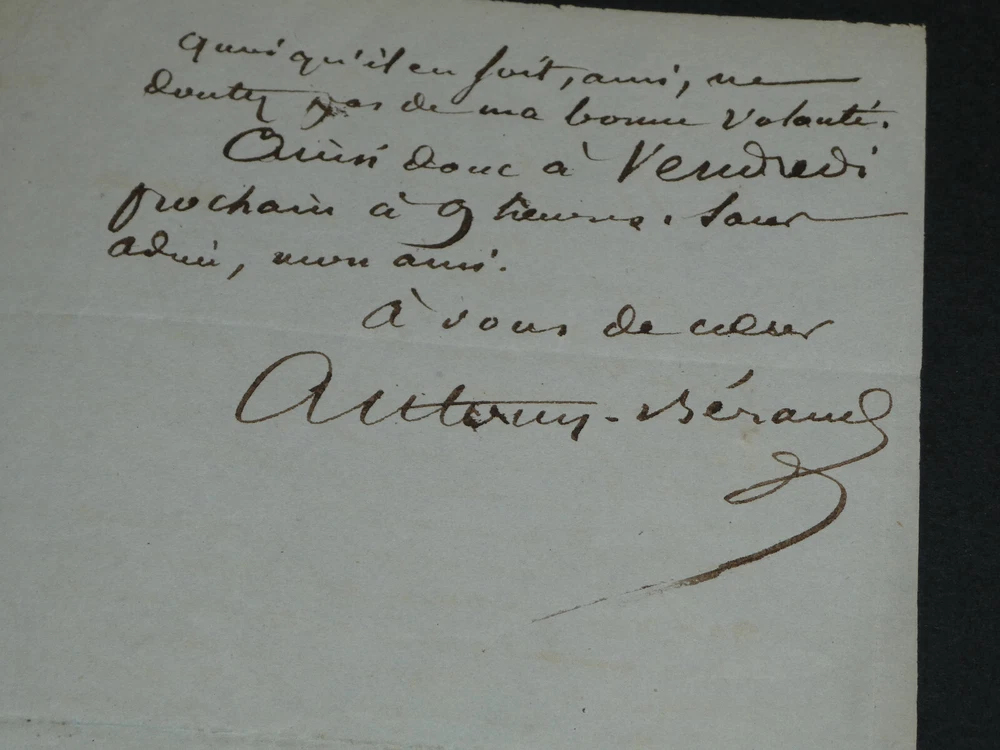 quoiqu'il en soit, ami, ne
doutez pas de ma bonne volonté.
Ainsi donc à Vendredi
prochain à 9 heures. Sans
adieu, mon ami.
À vous de cœur
Antony-Béraud